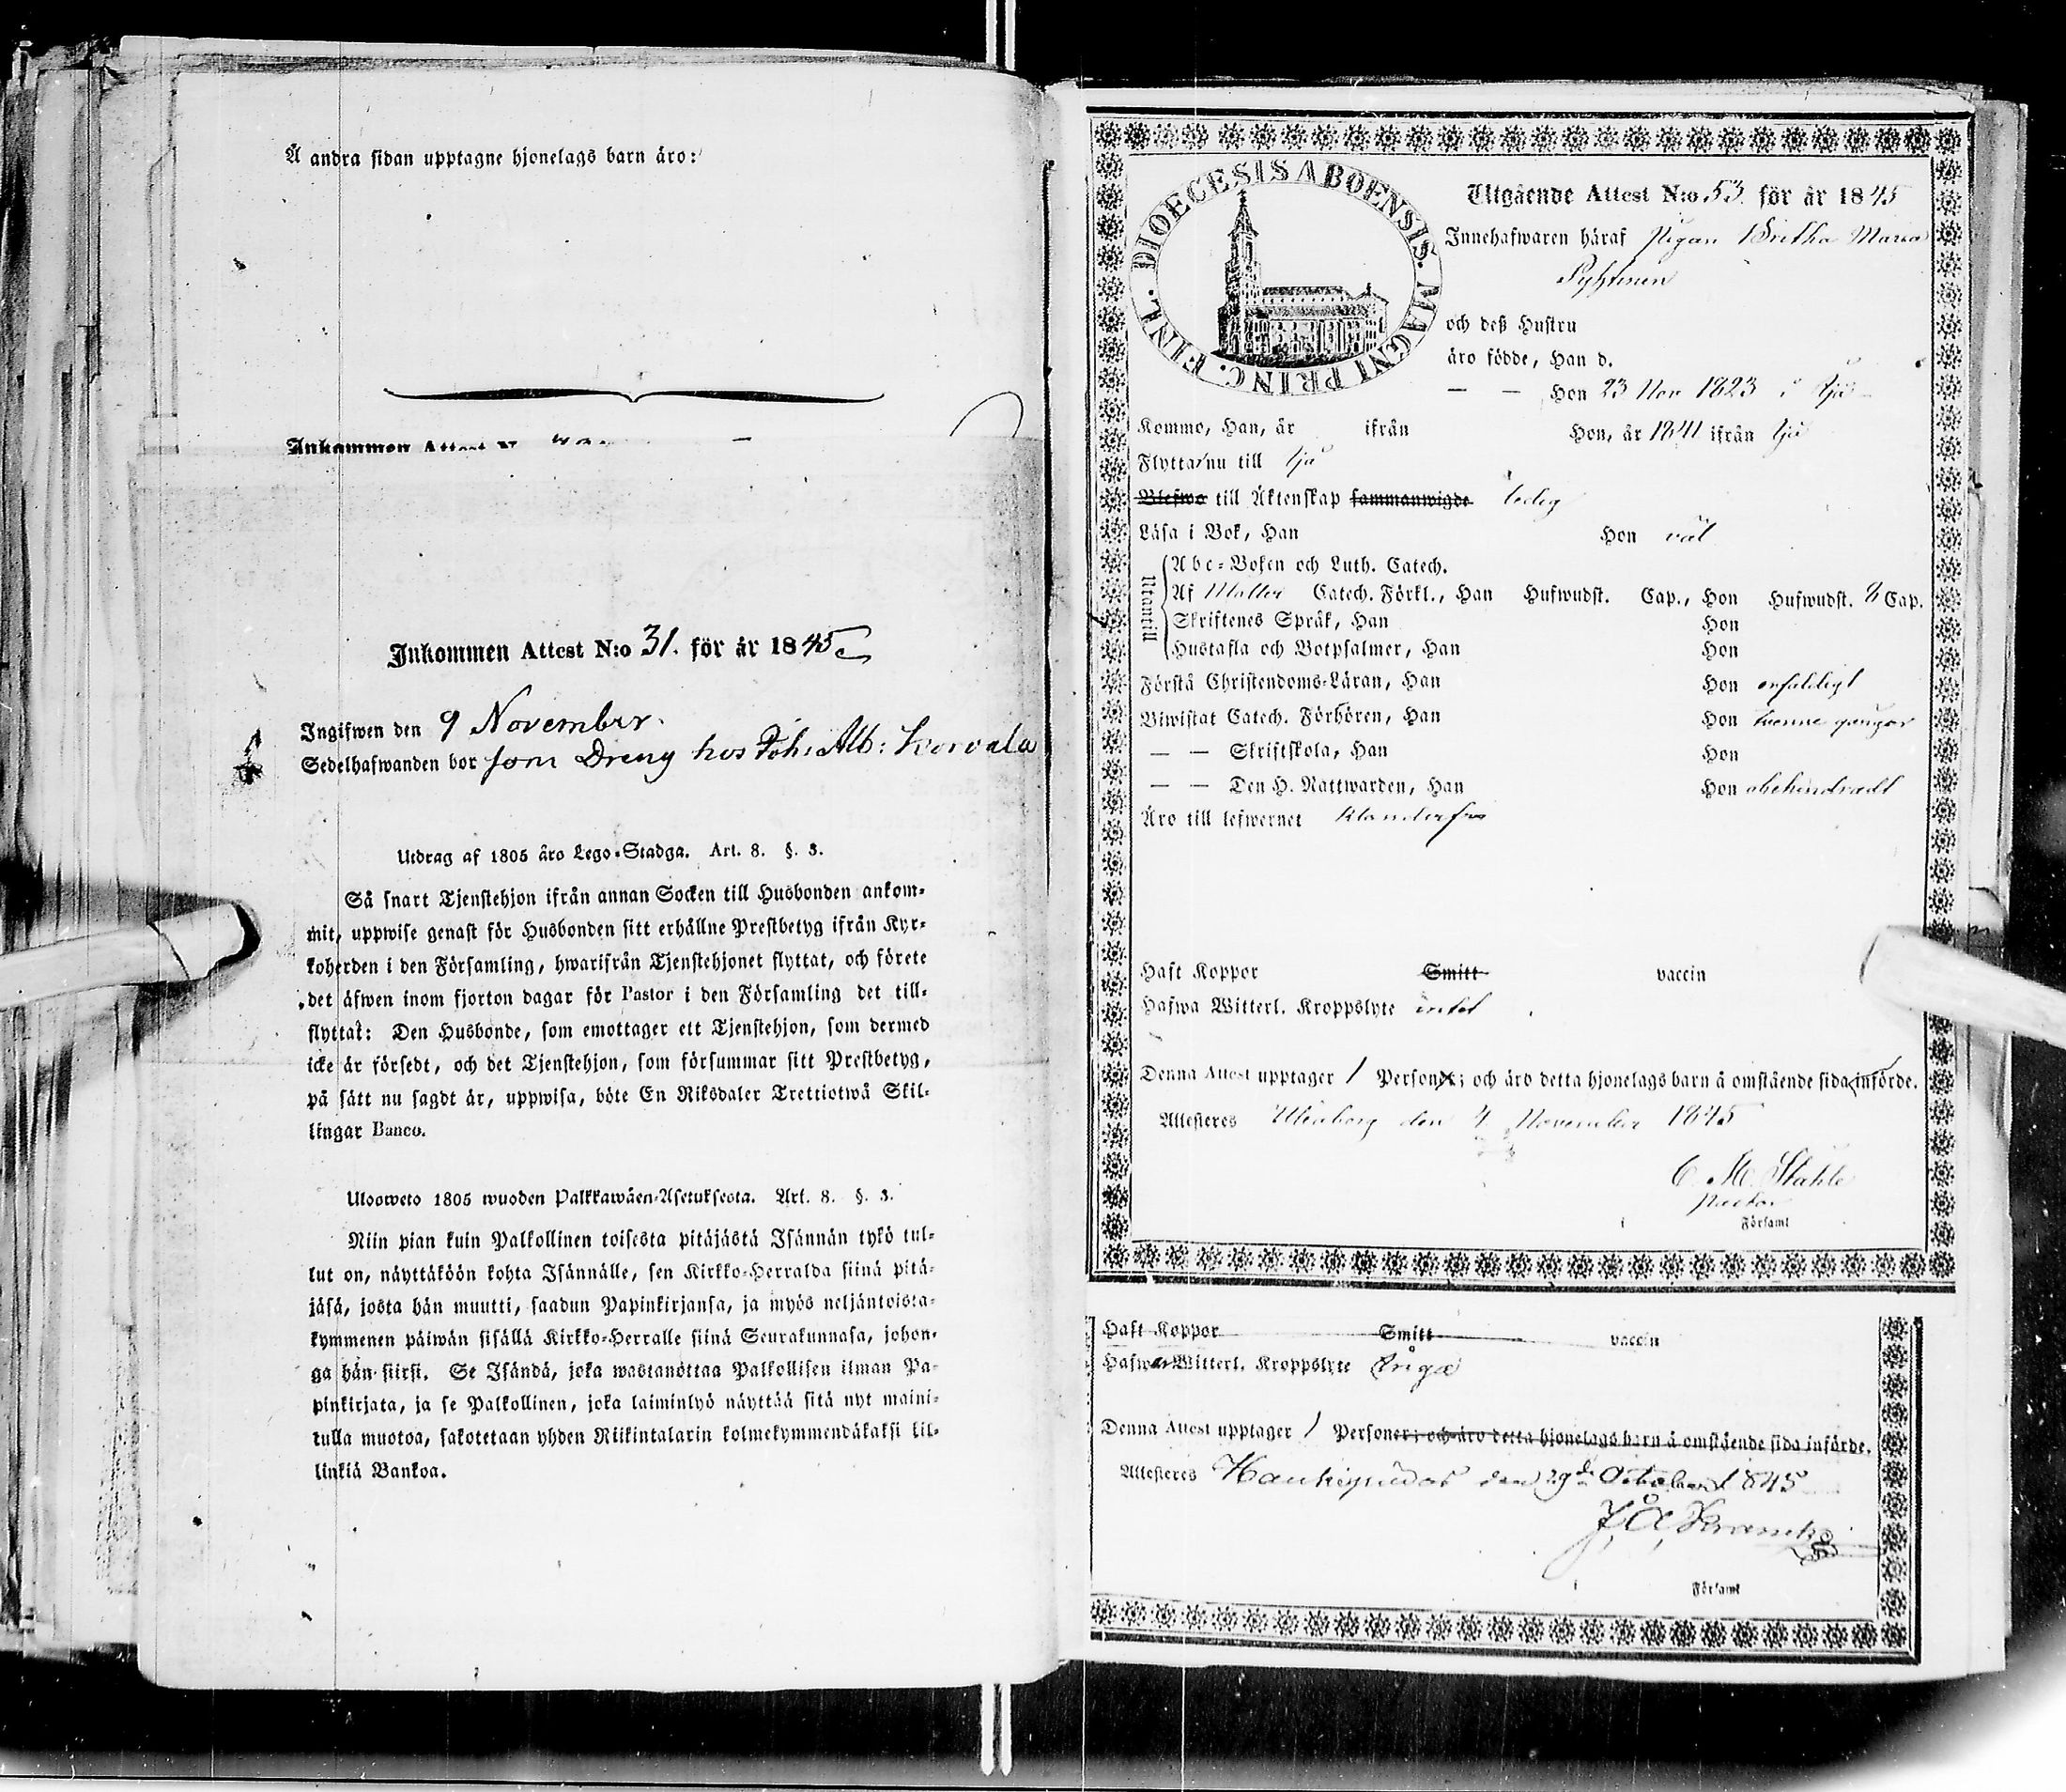 Å andra sidan upptagne hjonelags barn äro:
Inkommen Attest
Inkommen Attest N:o 31. för år 1845
Ingifwen den 9 November.
Sedelhafwanden bor som Dreng hos Joh: Alb: Korvala
Utdrag af 1805 års Lego-Stadga. Art. 8. §. 3.
Så snart Tjenstehjon ifrån annan Socken till Husbonden ankom-
mit, uppwise genast för Husbonden sitt erhållne Prestbetyg ifrån Kyr-
koherden i den Församling, hwarifrån Tjenstehjonet flyttat, och förete
det äfwen inom fjorton dagar för Pastor i den Församling det till-
flyttat: Den Husbonde, som emottager ett Tjenstehjon, som dermed
icke är försedt, och det Tjenstehjon, som försummar sitt Prestbetyg,
på sätt nu sagdt är, uppwisa, böte En Riksdaler Trettiotwå Skil-
lingar Banco.
Ulosweto 1805 wuoden Palkkawäen-Asetuksesta. Art. 8. §. 3.
Niin pian kuin Palkollinen toisesta pitäjästä Isännän tykö tul-
lut on, näyttäköön kohta Isännälle, sen Kirkko-Herralda siinä pitä-
jäsä, josta hän muutti, saadun Papinkirjansa, ja myös neljäntoista-
kymmenen päiwän sisällä Kirkko-Herralle siinä Seurakunnasa, johon-
ga hän siirsi. Se Isändä, joka wastanottaa Palkollisen ilman Pa-
pinkirjata, ja se Palkollinen, joka laiminlyö näyttää sitä nyt maini-
tulla muotoa, sakotetaan yhden Riikintalarin kolmekymmendäkaksi kil-
linkiä Bankoa.
DIOECESIS ABOENSIS. MAGNI PRINC. FINL.
Utgående Attest N:o 53 för år 1845
Innehafwaren häraf Pigan Britha Maria
och deß Hustru
äro födde, Han d.
— — Hon 23 Nov 1823 i Ijå
Kommo, Han, år ifrån Hon, år 1841 ifrån Ijå
Flytta nu till Ijå
Blefwo till Äktenskap sammanwigde ledig
Läsa i Bok, Han Hon väl
Utantill
Abc-Boken och Luth. Catech.
Af Möller Catech. Förkl., Han Hufwudst. Cap., Hon Hufwudst. 8 Cap.
Skriftenes Språk, Han Hon
Hustafla och Botpsalmer, Han Hon
Förstå Christendoms-Läran, Han Hon enfaldigt
Biwistat Catech. Förhören, Han Hon tvenne gånger
— — Skriftskola, Han Hon
— — Den H. Nattwarden, Han Hon obehindradt
Äro till lefwernet klanderfri
Haft Koppor Smitt vaccin
Hafwa Witterl. Kroppslyte intet
Denna Attest upptager 1 Personer; och äro detta hjonelags barn å omstående sida införde.
Attesteras Uleåborg den 4 November 1845
C. M. Ståhle
Pastor
i Församl
Haft Koppor Smitt vaccin
Hafwa Witterl. Kroppslyte Inga
Denna Attest upptager 1 Personer; och äro detta hjonelags barn å omstående sida införde.
Attesteras Haukipudas den 29de October 1845
i Församl